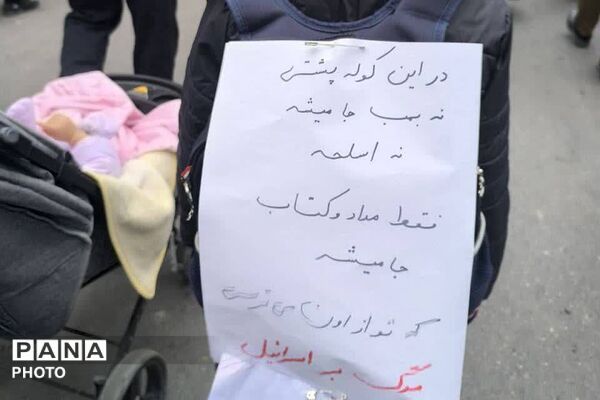 در این کوله پشتی
نه بمب جا میشه
نه اسلحه
فقط مداد و کتاب
جا میشه
که تو از اون می‌ترسی
مرگ بر اسرائیل
PANA
PHOTO